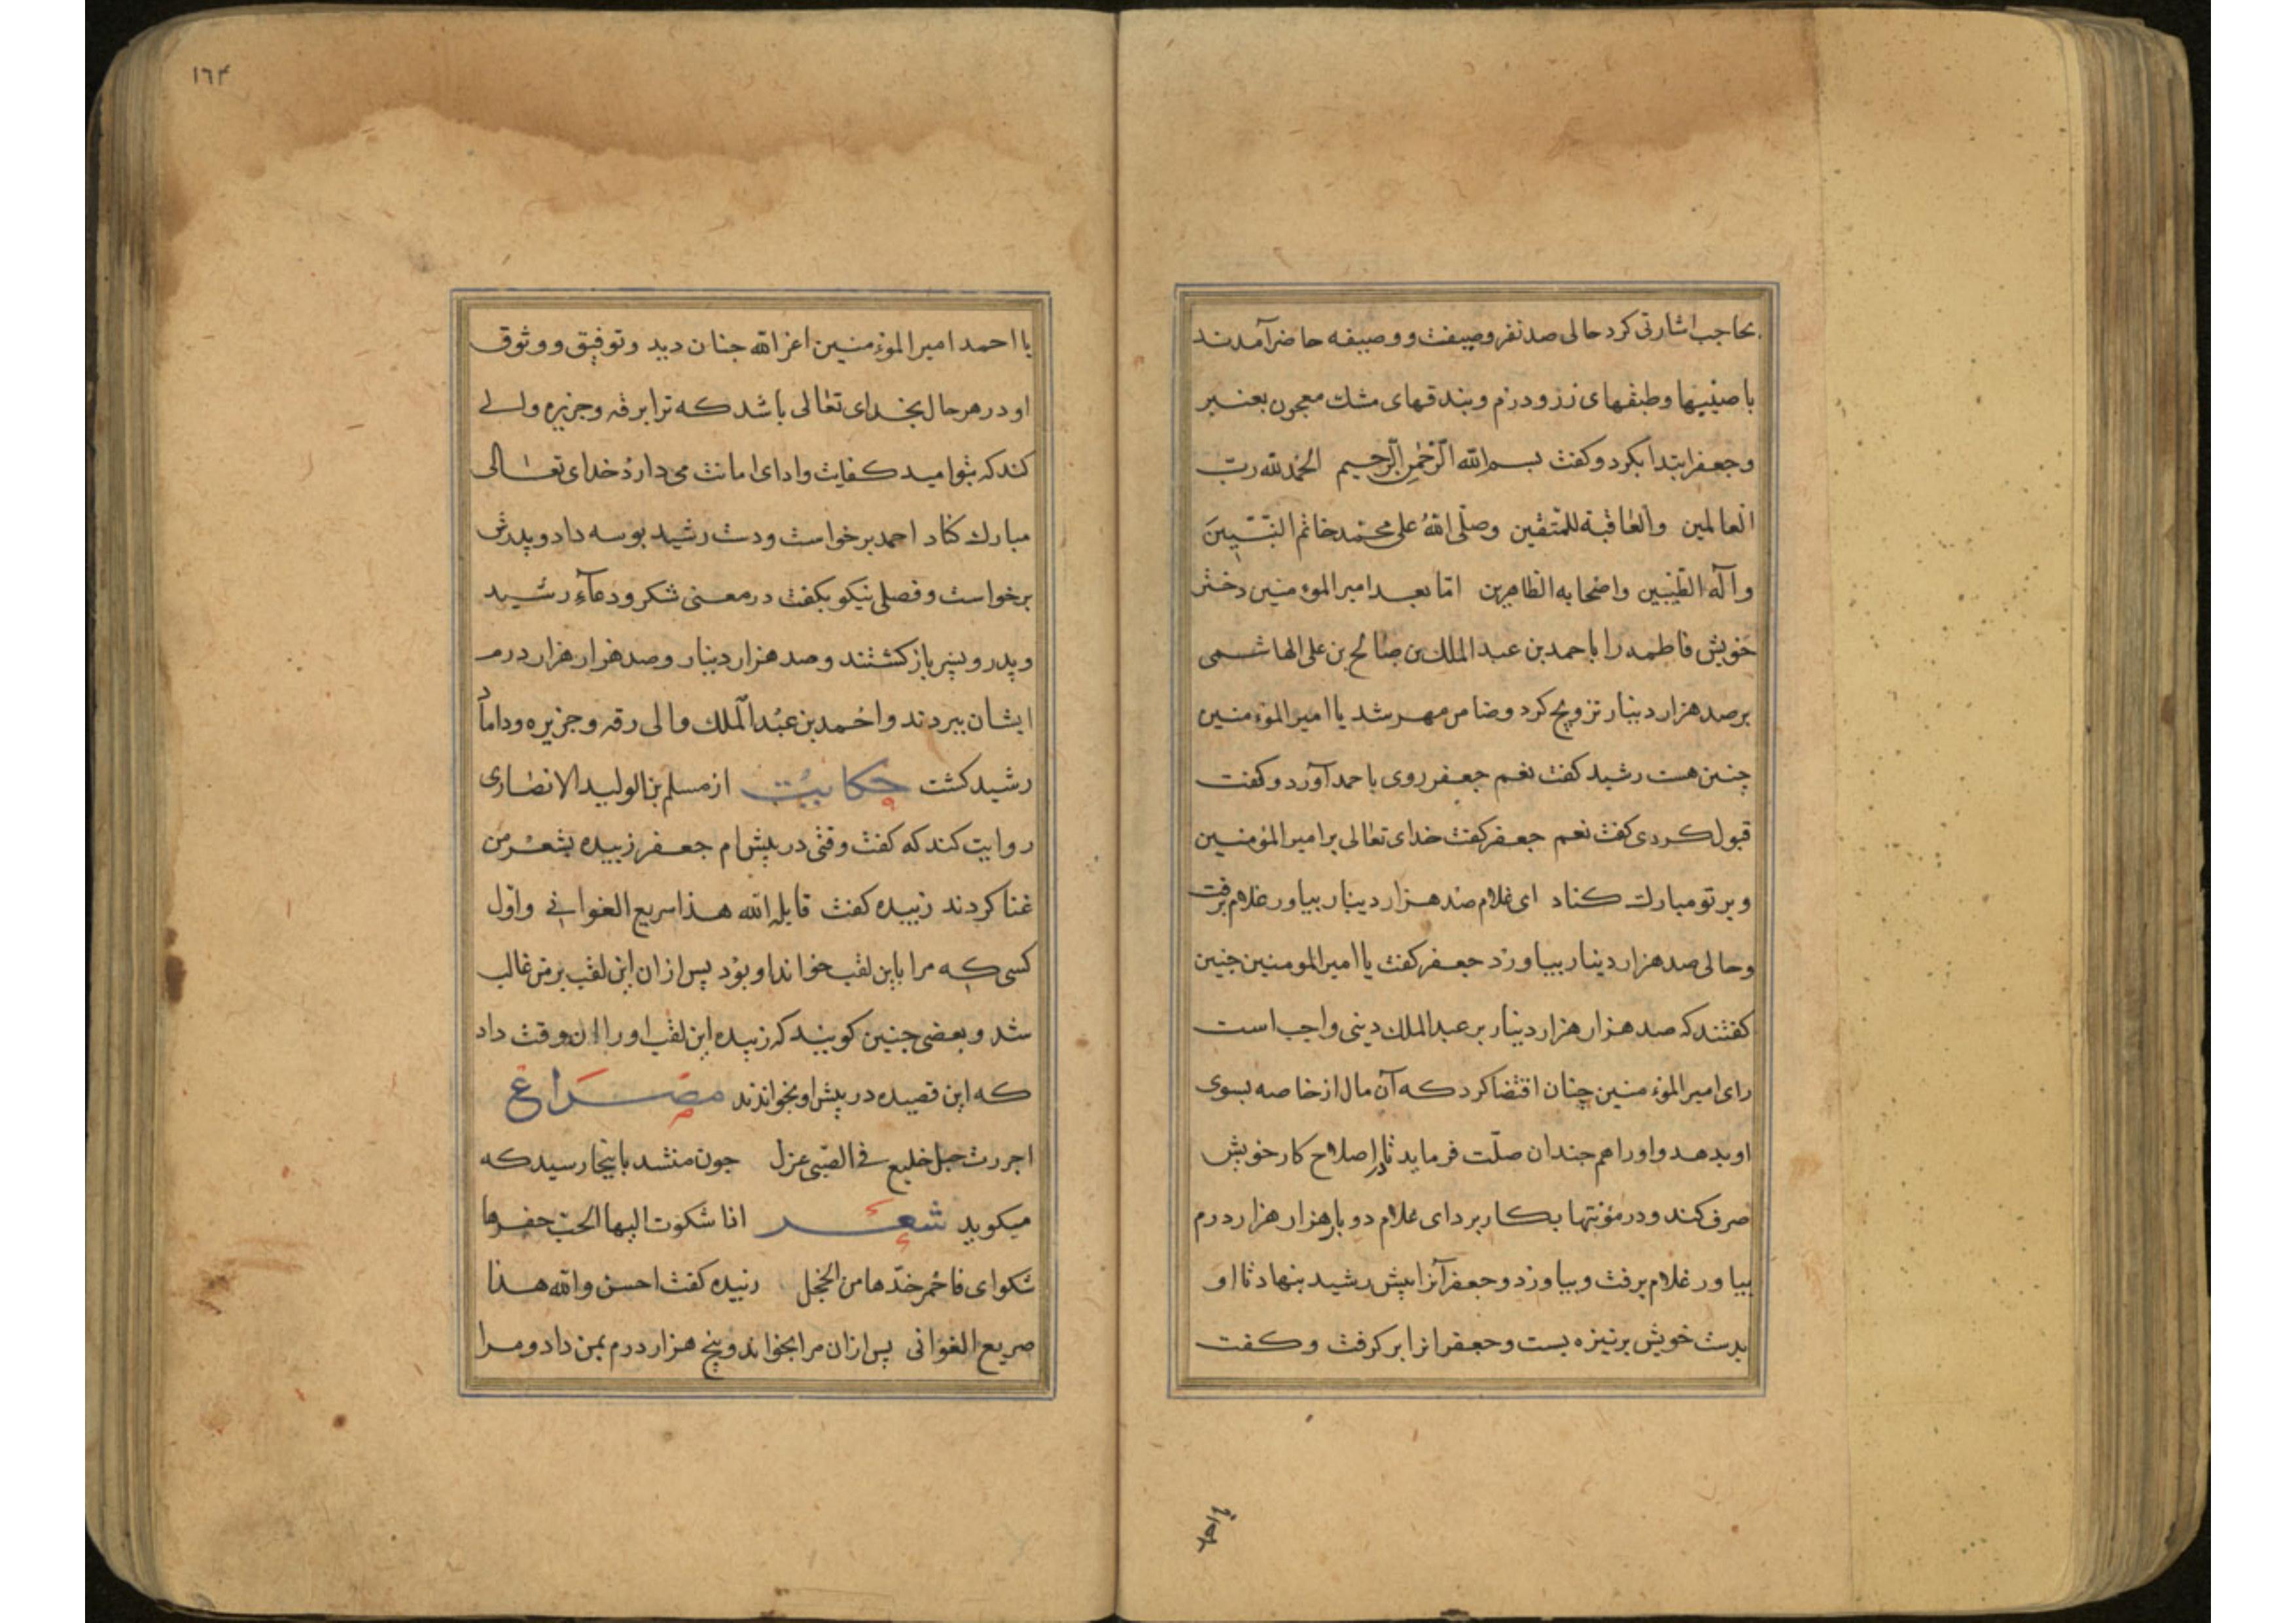 بحاجب اشارتی کرد حالی صد نفر وصیفت و وصیفه حاضر آمدند
با صینیها و طبقهای زر و درم و بندقهای مشك معجون بعنبر
و جعفر ابتدا بکرد و کفت بسم الله الرَّحْمٰنِ الرَّحیم الحَمْد لله ربّ
العالمین والعاقبة للمتّقین وصلّی اللهُ علی محمّد خاتم النّبییّنَ
وآله الطّیّبین واصحابه الطاهرین امّا بعد امیر المؤمنین دختر
خویش فاطمه را باحمد بن عبد الملك بن صالح بن علی الهاشمی
بر صد هزار دینار تزویج کرد و ضامن مهر شد یا امیر المؤمنین
چنین هست رشید کفت نعم جعفر روی باحمد آورد و کفت
قبول کردی کفت نعم جعفر کفت خدای تعالی بر امیر المؤمنین
و بر تو مبارك کناد ای غلام صد هزار دینار بیاور غلام برفت
و حالی صد هزار دینار بیاورد جعفر کفت یا امیر المومنین چنین
کفتند که صد هزار هزار دینار بر عبد الملك دینی واجب است
رای امیر المؤمنین چنان اقتضا کرد که آن مال از خاصه بسوی
او بدهد و او را هم چندان صلّت فرماید تا در اصلاح کار خویش
صرف کند و در مؤنتها بکار برد ای غلام دو بار هزار هزار درم
بیاور غلام برفت و بیاورد و جعفر آنرا پیش رشید بنهاد تا او
بدست خویش بر نیزه بست و جعفر انرا بر کرفت و کفت
یا احمد
١٦٤
یا احمد امیر المؤمنین اعز الله چنان دید و توفیق و وثوق
او در هر حال بخدای تعالی باشد که ترا بر رقه و جزیره والی
کند که بتو امید کفایت و ادای امانت می دارد خدای تعالی
مبارك کناد احمد برخواست و دست رشید بوسه داد و پدرش
برخواست و فصلی نیکو بکفت در معنی شکر و دعآء رشید
و پدر و پسر باز کشتند و صد هزار دینار و صد هزار هزار درم
ایشان ببردند و احمد بن عبد الملك والی رقه و جزیره و داماد
رشید کشت حکایت از مسلم بن الولید الانصاری
روایت کند که کفت وقتی در پیش ام جعفر زبیده بشعر من
غنا کردند زبیده کفت قابله الله هذا سریع الغوانی و اوّل
کسی که مرا باین لقب خواند او بود پس از ان این لقب بر من غالب
شد و بعضی چنین کویند که زبیده این لقب او را ان وقت داد
که این قصیده در پیش او بخواندند مصراع
اجررت حبل خلیع فی الصّبی غزل چون منشد باینجا رسید که
میکوید شعر اذا شکوت الیها الحبّ خفرها
شکوای فاحمر خدّها من الخجل زبیده کفت احسن والله هذا
صریع الغوانی پس از ان مرا بخواند و پنج هزار درم بمن داد و مرا